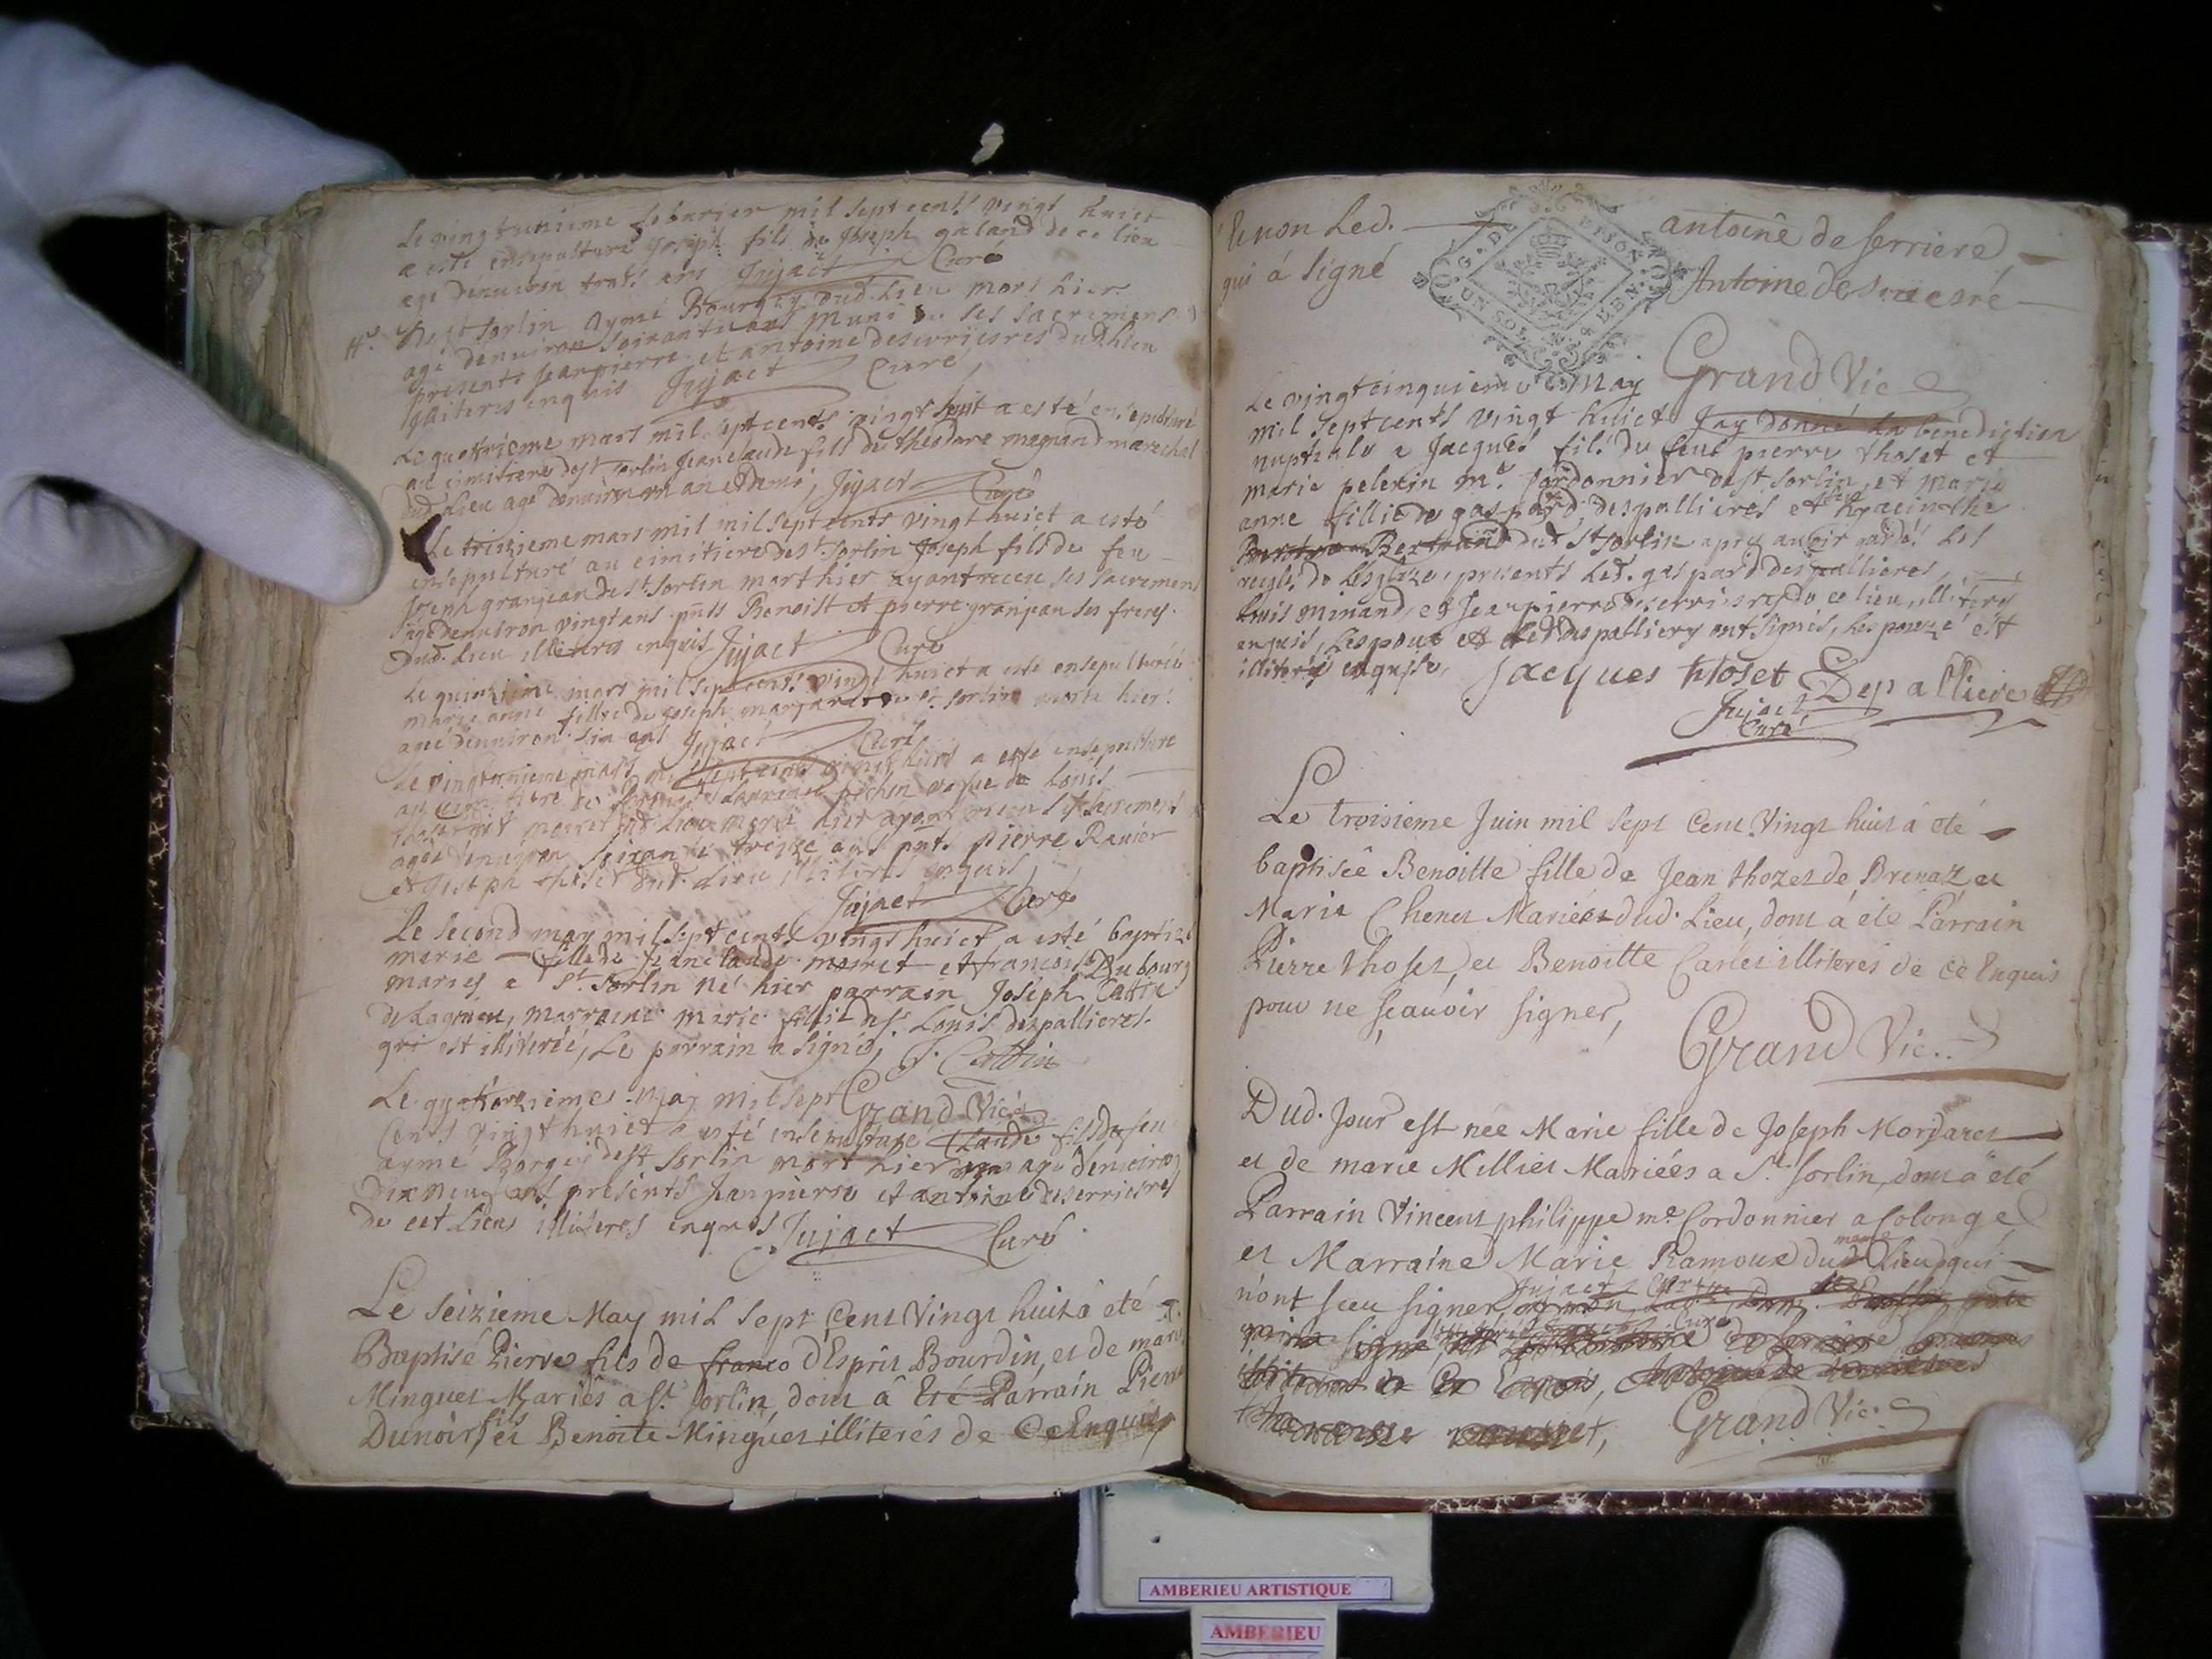 Le vingtunieme feburier mil sept cents vingt huict
a esté ensepulturé Joseph fils de Joseph galand de ce lieu
agé denuiron trois ans Jujact Curé
De St Sorlin Aymé Bourgey dud. Lieu mort hier
agé denuiron soixante ans muni de ses sacremens
presents Jeanpierre et antoine deserriesres dud lieu
illiteres inquis Jujact Curé
Le quatrieme mars mil sept cents vingt huit a esté ensepulturé
au cimitiere de st sorlin Jeanclaude fils de theodore marechal
dud. Lieu agé denuiron un an et demi, Jujact Curé
Le treizieme mars mil sept cents vingt huict a esté
ensepulturé au cimitiere de st. sorlin Joseph fils de feu
Joseph granjean de st. sorlin mort hier ayant receu ses sacremens
agé denuiron vingt ans pnts Benoist et pierre granjean ses freres
dud. Lieu illiteres enquis Jujact Curé
Le quinzieme mars mil sept cents vingt huict a esté ensepulturée
marie anne fillie de Joseph margaret de st. sorlin morte hier
agée denuiron six ans Jujact Curé
Le vingtunieme mars mil sept cents vingt huict a esté ensepulturé
au cimitiere de vefue de Louis
moiret dud Lieu morte hier ayant receu les sacrements
agée denuiron soixante treize ans pnts pierre Ravier
et Joseph thoset dud. Lieu illiteres enquis
Jujact Curé
Le second may mil sept cents vingt huict a esté baptizé
marie fille de Jeanclaude moiret et francoise Dubourg
mariés a St. Sorlin né hier parrain Joseph Cattin
de Lagnieu, marraine marie fillie de sr. Louis despallieres
qui est illiterée, Le parrain a signé, J. Cattin
Grand Vic.
Le quatorzieme may mil sept
cents vingt huict a esté ensepulturé Claude fils de feu
aymé Bourgey de st. sorlin mort hier agé denuiron
dix neuf ans presents Jeanpierre et antoine deserriesres
de cet Lieu illiteres enquis Jujact Curé
Le seizieme May mil sept Cent Vingt huit â eté
Baptisé Pierre fils de franco d'Esprit Bourdin, et de marie
Minguet Mariés a St. Sorlin, dont â Eté Parrain Pierre
Dunoir fils et Benoite Minguet illiterés de Ce Enquis
Et non Led. antoine de serriere
qui á signé Antoine deseriesré
Grand Vic
Le vingtcinquieme May
mil sept cents vingt huict Jay donné La bénédiction
nuptiale a Jacques fils du feu pierre thoset et
marie pelerin me. Cordonnier de st sorlin, et marie
anne fillie de gaspard despallieres et de hyacinthe
Bertrand dud St Sorlin apres auoir gardé les
reigles de Lesglize, presents Led. gaspard despallieres
Louis minand, et Jeanpierre deserriesres de ce lieu illiteres
enquis, Lespoux et Led. despallieres ont signés, Lespouzé est
illiteré enquise,
Jacques thoset Depalliere
Jujact
Curé
Le troisieme Juin mil sept Cent Vingt huit â eté
baptiseê Benoitte fille de Jean thozet de Brenaz et
Marie Chenet Mariées dud. Lieu, dont á eté Parrain
Pierre thoset, et Benoitte Carlet illiterés de ce Enquis
pour ne sçauoir signer,
Grand Vic.
Dud. Jour est née Marie fille de Joseph Margaret
et de marie Milliet Mariées a St. Sorlin, dont â eté
Parrain Vincent philippe me. Cordonnier a Colonge
et Marraine Marie Ramoux dud meme Lieu qui
n'ont sceu signer Jujact Curé
Grand Vic.
AMBERIEU ARTISTIQUE
AMBERIEU